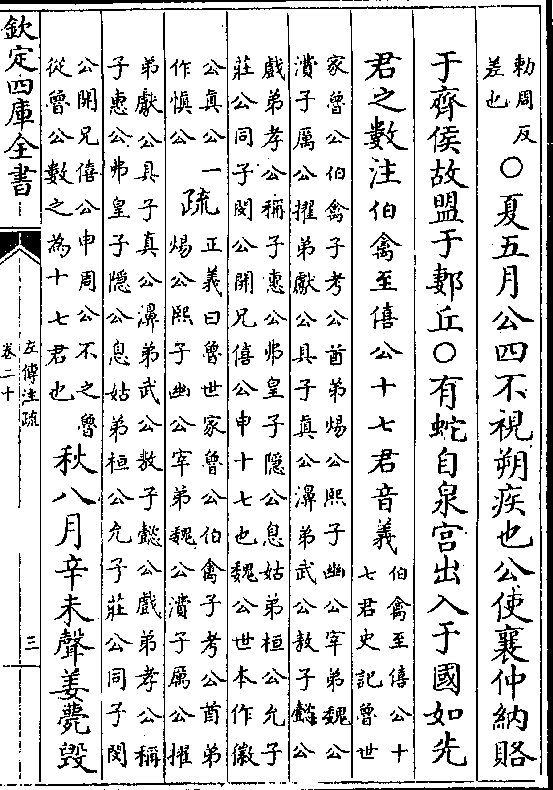 勑周反
差也
○夏五月公四不視朔疾也公使襄仲納賂
于齊侯故盟于郪丘○有蛇自泉宫出入于國如先
君之數注伯禽至僖公十七君音義
伯禽至僖公十
七君史記魯世
家魯公伯禽子考公酋弟煬公熙子幽公宰弟魏公
濆子厲公擢弟獻公具子真公濞弟武公敖子懿公
戲弟孝公稱子惠公弗皇子隱公息姑弟桓公允子
莊公同子閔公開兄僖公申十七也魏公世本作徽
公真公一
作慎公
疏
正義曰魯世家魯公伯禽子考公酋弟
煬公熙子幽公宰弟魏公濆子厲公擢
弟獻公具子真公濞弟武公敖子懿公戲弟孝公稱
子惠公弗皇子隱公息姑弟桓公允子莊公同子閔
公開兄僖公申周公不之魯
從魯公數之為十七君也
秋八月辛未聲姜薨毁
欽定四庫全書
左傳注疏
卷二十
三